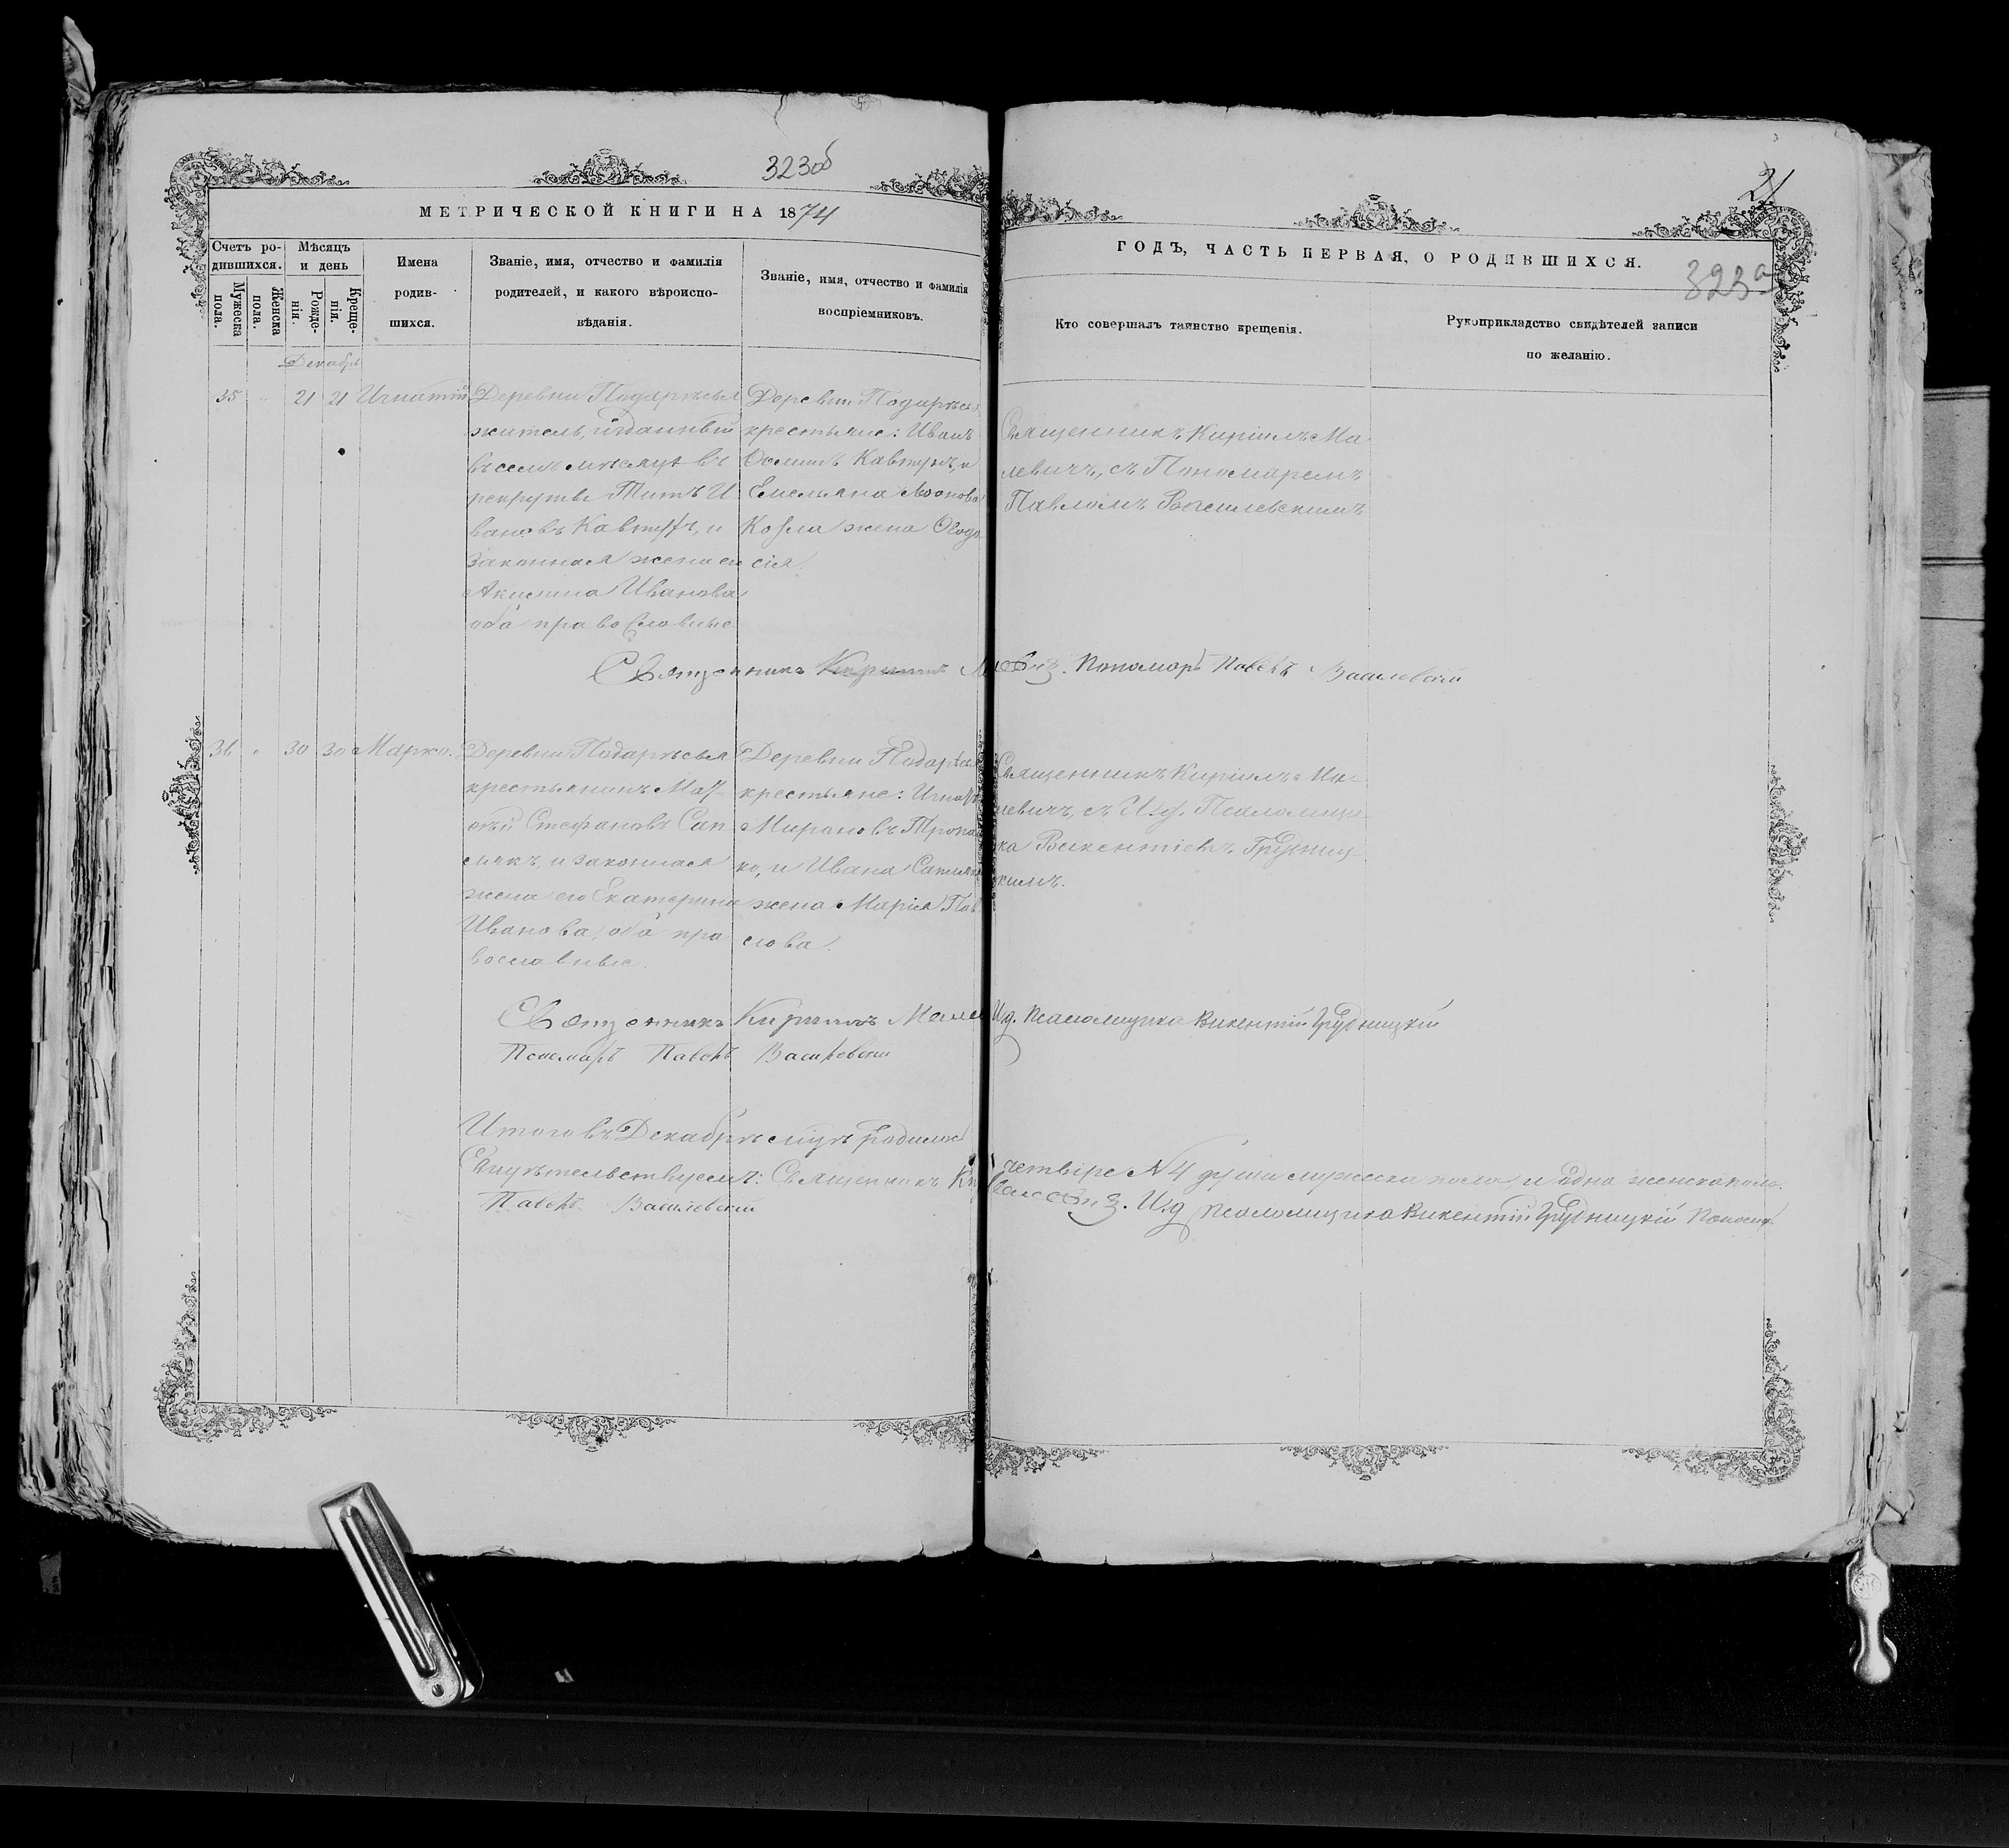 323об
МЕТРИЧЕСКОЙ КНИГИ НА 1874
Счетъ родившихся.
Мужеска пола.
Женска пола.
Мѣсяцъ и день
Рожденія.
Крещенія.
Имена родившихся.
Званіе, имя, отчество и фамилія
родителей, и какого вѣроиспо-
вѣданія.
Званіе, имя, отчество и фамилія
воспріемниковъ.
21
ГОДЪ, ЧАСТЬ ПЕРВАЯ, О РОДИВШИХСЯ.
323а
Кто совершалъ таинство крещенія.
Рукоприкладство свидѣтелей записи
по желанію.
Декабрь
35 " 21 21 Игнатій
Деревни Подарѣсья
житель, отданный
въ семъ мѣсяцѣ въ
рекруты Титъ И
вановъ Кавтунъ, и
законная жена его
Акилина Иванова
оба православные
Деревни Подарѣсья
крестьяне: Иванъ
Кавтунъ, и
Емельяна
Козла жена Ѳеодо
сія.
Священникъ Кириллъ Ма
левичъ, съ Пономаремъ
Павломъ Василевскимъ
Священникъ Кириллъ Малевичъ. Пономарь Павелъ Василевскій
36 " 30 30 Марко.
Деревни Подарѣсья
крестьянинъ Мат-
ѳѣй Стефановъ Сап
слякъ, и законная
жена его Екатерина
Иванова, оба пра
вославные.
Деревни Подарѣсья
крестьяне: Игнатій
Мироновъ
ко, и Ивана
жена Марія Пав
лова.
Священникъ Кириллъ Ма-
левичъ, съ И. д. Псаломщи-
ка Викентіемъ Грудниц-
кимъ.
Священникъ Кириллъ Малевичъ И.д. Псаломщика Викентій Грудницкій
Пономарь Павелъ Василевскій
Итого въ Декабрѣ мѣсяцѣ родилось четыре № 4 души мужеска пола и одна женска пола.
Свидѣтельствуемъ: Священникъ Кириллъ Малевичъ. И.д Псаломщика Викентій Грудницкій Пономарь
Павелъ Василевскій